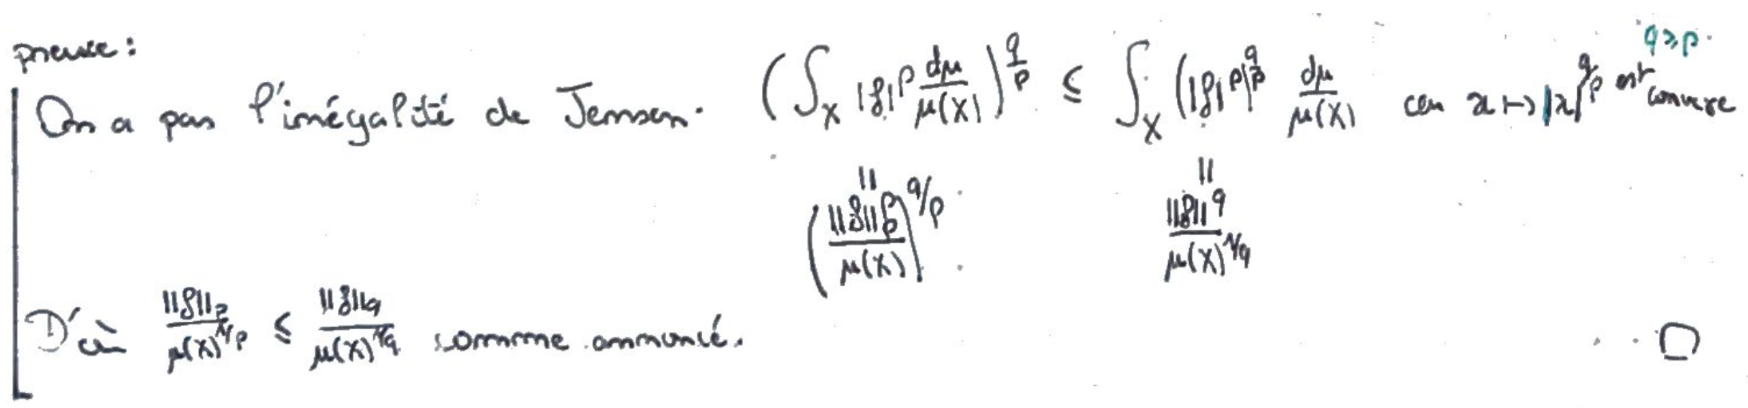 preuve :
q ≥ p.
On a par l'inégalité de Jensen. $\left(\int_X |f|^p \frac{d\mu}{\mu(X)}\right)^{\frac{q}{p}} \leq \int_X (|f|^p)^{\frac{q}{p}} \frac{d\mu}{\mu(X)}$ car $x \mapsto |x|^{\frac{q}{p}}$ est convexe
$\left(\frac{\|f\|_p^p}{\mu(X)}\right)^{q/p}$ $\frac{\|f\|^q}{\mu(X)^{1/q}}$
D'où $\frac{\|f\|_p}{\mu(X)^{1/p}} \leq \frac{\|f\|_q}{\mu(X)^{1/q}}$ comme annoncé. □